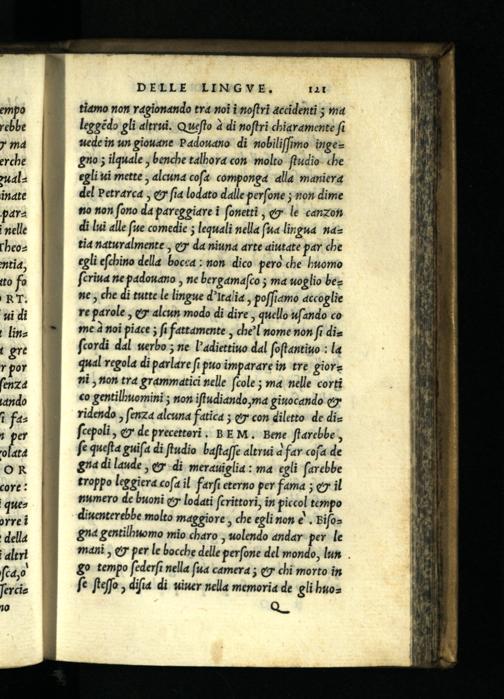 DELLE LINGVE. 121
tiamo non ragionando tra noi i noſtri accidenti ; ma
leggẽdo gli altrui. Queſto à di noſtri chiaramente ſi
uede in un giouane Padouano di nobiliſſimo inge=
gno ; ilquale, benche talhora con molto ſtudio che
egli ui mette, alcuna coſa componga alla maniera
del Petrarca, & ſia lodato dalle perſone ; non dime
no non ſono da pareggiare i ſonetti, & le canzon
di lui alle ſue comedie ; lequali nella ſua lingua na=
tia naturalmente, & da niuna arte aiutate par che
egli eſchino della bocca : non dico però che huomo
ſcriua ne padouano, ne bergamaſco ; ma uoglio be=
ne, che di tutte le lingue d'Italia, poſſiamo accoglie
re parole, & alcun modo di dire, quello uſando co
me à noi piace ; ſi fattamente, che'l nome non ſi di=
ſcordi dal uerbo ; ne l'adiettiuo dal ſoſtantiuo : la
qual regola di parlare ſi puo imparare in tre gior=
ni, non tra grammatici nelle ſcole ; ma nelle corti
co gentilhuomini ; non iſtudiando, ma giuocando &
ridendo, ſenza alcuna fatica ; & con diletto de di=
ſcepoli, & de precettori. BEM. Bene ſtarebbe,
ſe queſta guiſa di ſtudio baſtaſſe altrui à far coſa de
gna di laude, & di merauiglia : ma egli ſarebbe
troppo leggiera coſa il farſi eterno per fama ; & il
numero de buoni & lodati ſcrittori, in piccol tempo
diuenterebbe molto maggiore, che egli non è. Biſo=
gna gentilhuomo mio charo, uolendo andar per le
mani, & per le bocche delle perſone del mondo, lun
go tempo ſederſi nella ſua camera ; & chi morto in
ſe ſteſſo, diſia di uiuer nella memoria de gli huo=
Q